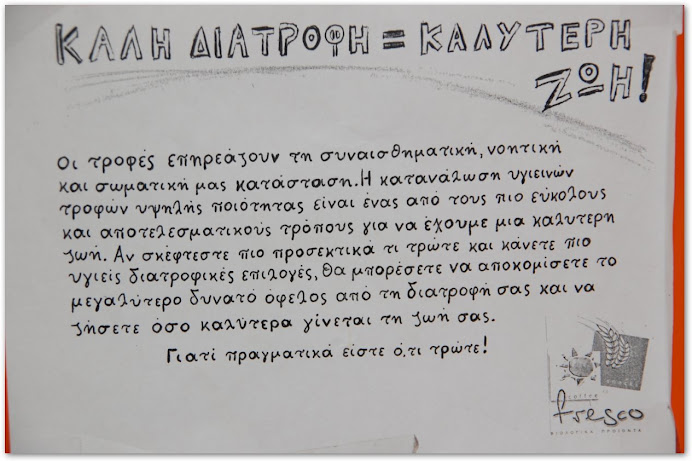 ΚΑΛΗ ΔΙΑΤΡΟΦΗ = ΚΑΛΥΤΕΡΗ
ΖΩΗ!
Οι τροφές επηρεάζουν τη συναισθηματική, νοητική
και σωματική μας κατάσταση. Η κατανάλωση υγιεινών
τροφών υψηλής ποιότητας είναι ένας από τους πιο εύκολους
και αποτελεσματικούς τρόπους για να έχουμε μια καλυτερη
ζωή. Αν σκέφτεστε πιο προσεκτικά τι τρώτε και κάνετε πιο
υγιείς διατροφικές επιλογές, θα μπορέσετε να αποκομίσετε το
μεγαλύτερο δυνατό όφελος από τη διατροφή σας και να
ζήσετε όσο καλύτερα γίνεται τη ζωή σας.
Γιατί πραγματικά είστε ό,τι τρώτε!
fresco
ΒΙΟΛΟΓΙΚΑ ΠΡΟΪΟΝΤΑ